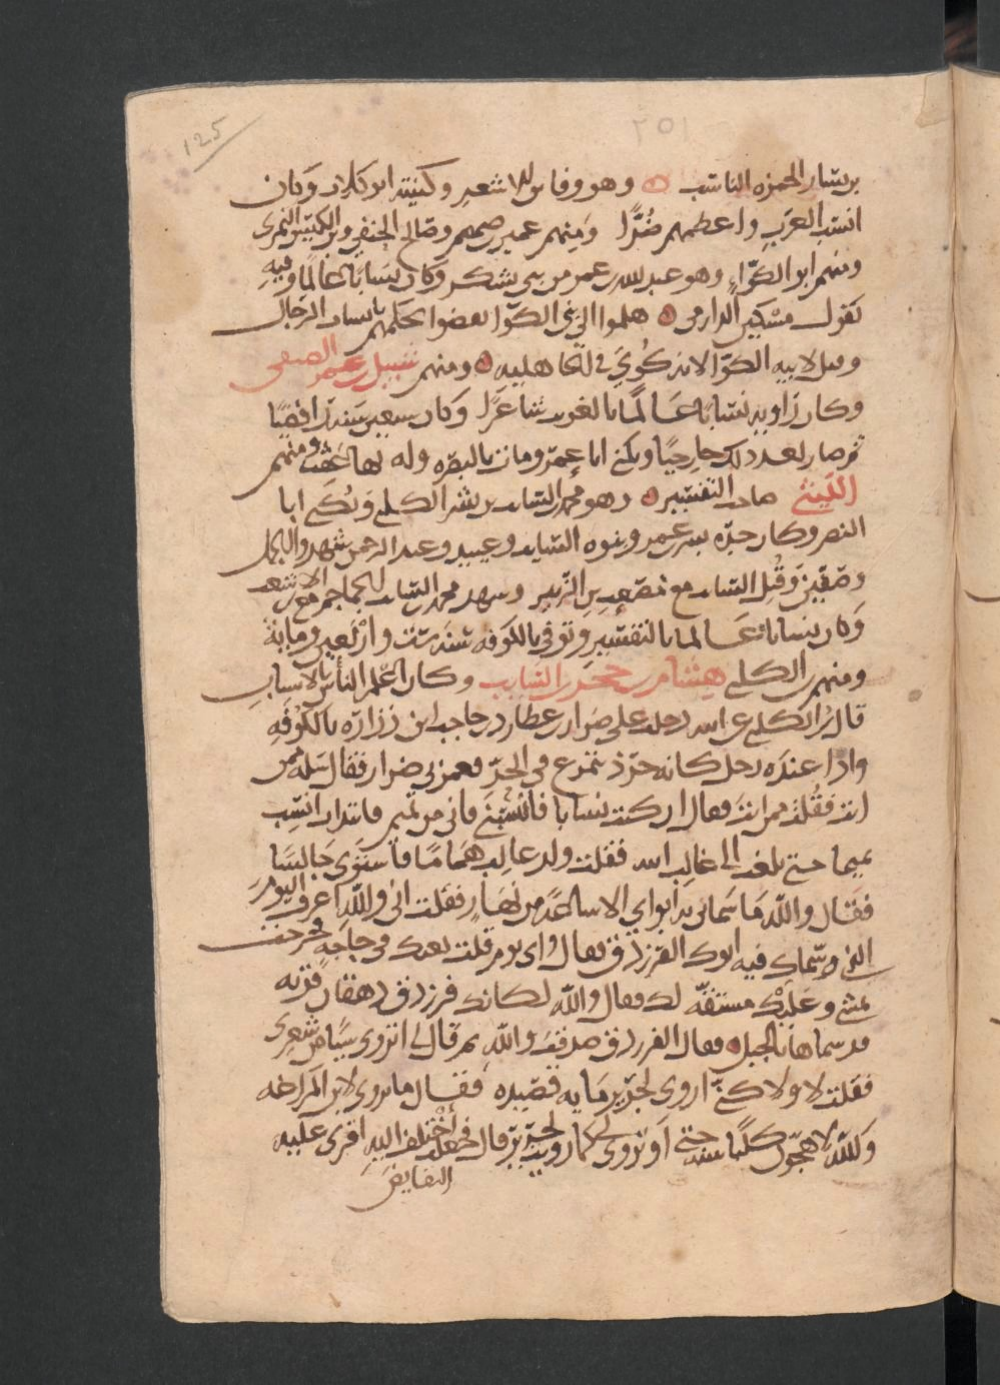 125
٢٥١
بن بشار الحمزه الناسب ۞ وهو وفاس للاشعر وكنيته ابو كلاد وكان
انسب العرب واعظمهم ضرًّا ومنهم عمير بن ضمضم وصالح الحنفي وبن الكيس النمرى
ومنهم ابو الكوّاء وهو عبد لله بن عمر من بني يشكر وكان نسابا عالما وفيه
يقول مسكين الدارمي ۞ هلموا الي بني الكوّا تعضوا بحكمهم بانساب الرجال
وقيل لابيه الكوّا لانه كُويَ في الجاهليه ۞ ومنهم شبيل بن عمر الضبعي
وكان زاويه نسّابا عالما بالغريب شاعرًا وكان سبعين سنه رافضيًا
ثم صار بعد ذلك خارجيًا ويكني ابا عمر ومات بالبصره وله بها عقب ومنهم
الكلبي صاحب التفسير ۞ وهو محمد بن السايب بن بشر الكلبي ويُكنى ابا
النصر وكان جدّه بشر بن عمر وبنوه السايب وعبيد وعبد الرحمن شهدوا الجمل
وصفّين وقُتِل السايب مع مصعب بن الزبير وشهد محمد بن السايب الجماجم مع بن الاشعث
وكان نسابا عالما بالتفسير وتوفي بالكوفه سنه ست واربعين ومايه
ومنهم بن الكلبي هشام بن محمد بن السايب وكان اعلم الناس بالانساب
قال بن الكلبي عن ابيه دخلت علي ضرار بن عطارد بن حاجب ابن زراره بالكوفه
واذا عنده رجل كانه جرذ يتمرغ في الخزّ فغمزني ضرار فقال سله ممن
انت فقلت ممن انت فقال ان كنت نسابا فانسبني فاني من تميم فابتدات انسب
تميما حتي بلغت الى غالب ابيه فقلت ولد غالب همامًا فاستوى جالسا
فقال والله ما سماني به ابواي الا ساعة من نهار فقلت اني والله اعرف اليوم
الذي سمّاك فيه ابوك الفرزدق فقال واي يوم قلت بعثك في حاجه فخرجت
تمشي وعليك مستقه لك فقال والله لكانك فرزدق دهقان قريه
قد سماها بالجبل ۞ فقال الفرزدق صدقت والله ثم قال اتروى شيا من شعرى
فقلت لا ولاكنّي اروي لجرير مايه قصيده فقال ما تروي لابن المراغه
والله لاهجونّ كلبا سنه حتي او تروى لي كما رويت لجرير قال فجعلت اختلف اليه اقرى عليه
النقايض